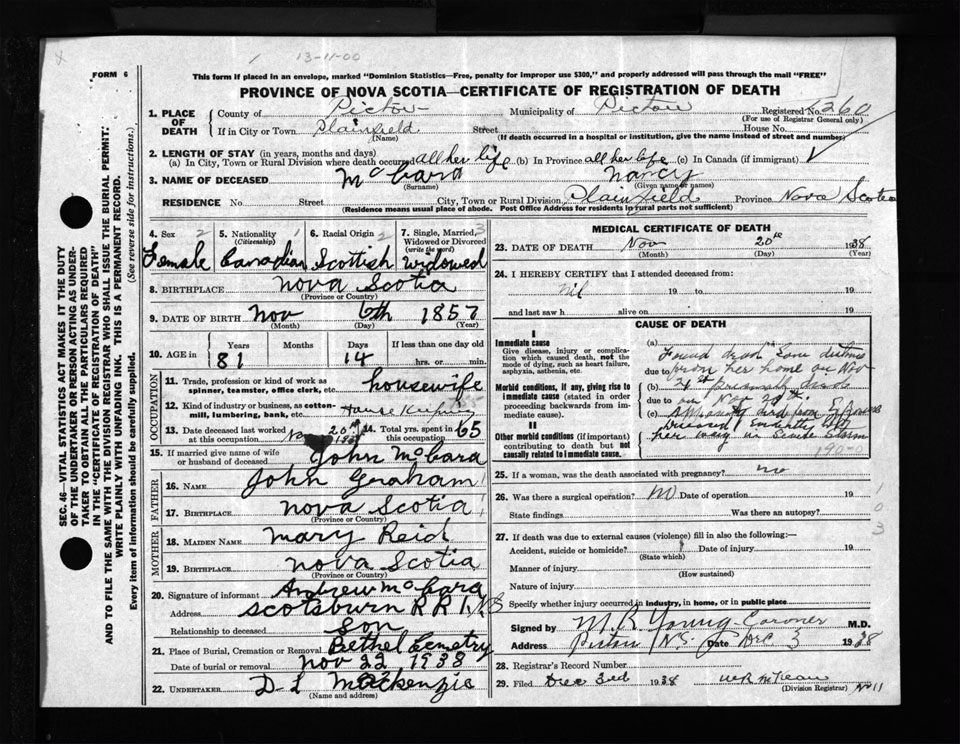 13-11-00
FORM 6
This form if placed in an envelope, marked "Dominion Statistics—Free, penalty for improper use $300," and properly addressed will pass through the mail "FREE"
PROVINCE OF NOVA SCOTIA—CERTIFICATE OF REGISTRATION OF DEATH
1. PLACE OF DEATH County of Pictou Municipality of Pictou Registered No. 360
(For use of Registrar General only)
If in City or Town Plainfield Street House No.
(Name) (If death occurred in a hospital or institution, give the name instead of street and number)
2. LENGTH OF STAY (in years, months and days)
(a) In City, Town or Rural Division where death occurred all her life (b) In Province all her life (c) In Canada (if immigrant)
3. NAME OF DECEASED McCara Nancy
(Surname) (Given name or names)
RESIDENCE No. Street City, Town or Rural Division Plainfield Province Nova Scotia
(Residence means usual place of abode. Post Office Address for residents in rural parts not sufficient)
SEC. 46—VITAL STATISTICS ACT MAKES IT THE DUTY
OF THE UNDERTAKER OR PERSON ACTING AS UNDER-
TAKER TO OBTAIN ALL THE PARTICULARS REQUIRED
IN THE "CERTIFICATE OF REGISTRATION OF DEATH"
AND TO FILE THE SAME WITH THE DIVISION REGISTRAR WHO SHALL ISSUE THE BURIAL PERMIT.
WRITE PLAINLY WITH UNFADING INK. THIS IS A PERMANENT RECORD.
Every item of information should be carefully supplied. (See reverse side for instructions.)
4. Sex 2 5. Nationality 1 6. Racial Origin 2 7. Single, Married, 3
(Citizenship) Widowed or Divorced
(write the word)
Female Canadian Scottish Widowed
8. BIRTHPLACE Nova Scotia
(Province or Country)
9. DATE OF BIRTH Nov 6th 1857
(Month) (Day) (Year)
10. AGE in Years Months Days If less than one day old
81 14 hrs. or min.
OCCUPATION
11. Trade, profession or kind of work as
spinner, teamster, office clerk, etc. housewife
12. Kind of industry or business, as cotten-
mill, lumbering, bank, etc. House Keeping
13. Date deceased last worked at this occupation 20th 14. Total yrs. spent in this occupation 65
15. If married give name of wife
or husband of deceased John McCara
FATHER
16. NAME John Graham
17. BIRTHPLACE Nova Scotia
(Province or Country)
MOTHER
18. MAIDEN NAME Mary Reid
19. BIRTHPLACE Nova Scotia
(Province or Country)
20. Signature of informant Andrew McCara
Address Scotsburn RR1 NS
Relationship to deceased Son
21. Place of Burial, Cremation or Removal Bethel Cemetry
Date of burial or removal Nov 22 1938
22. UNDERTAKER D L MacKenzie
(Name and address)
MEDICAL CERTIFICATE OF DEATH
23. DATE OF DEATH Nov 20th 1938
(Month) (Day) (Year)
24. I HEREBY CERTIFY that I attended deceased from:
nil 19 to 19
and last saw h alive on 19
CAUSE OF DEATH
I
Immediate cause
Give disease, injury or complica-
tion which caused death, not the
mode of dying, such as heart failure,
asphyxia, asthenia, etc.
Morbid conditions, if any, giving rise to
immediate cause (stated in order
proceeding backwards from im-
mediate cause).
II
Other morbid conditions (if important)
contributing to death but not
causally related to immediate cause.
(a) Found dead some distance
due to from her home on Nov
(b) 21st
due to on Nov 20th.
(c) Apparently died from Exposure
her way in Severe Storm
190-0
25. If a woman, was the death associated with pregnancy? no
26. Was there a surgical operation? No Date of operation 19
State findings Was there an autopsy?
27. If death was due to external causes (violence) fill in also the following:—
Accident, suicide or homicide? Date of injury 19
(State which)
Manner of injury
(How sustained)
Nature of injury
Specify whether injury occurred in industry, in home, or in public place
1
0
3
Signed by M R Young Coroner M.D.
Address Pictou N.S. Date Dec 3 1938
28. Registrar's Record Number
29. Filed Dec 3rd 1938
(Division Registrar)